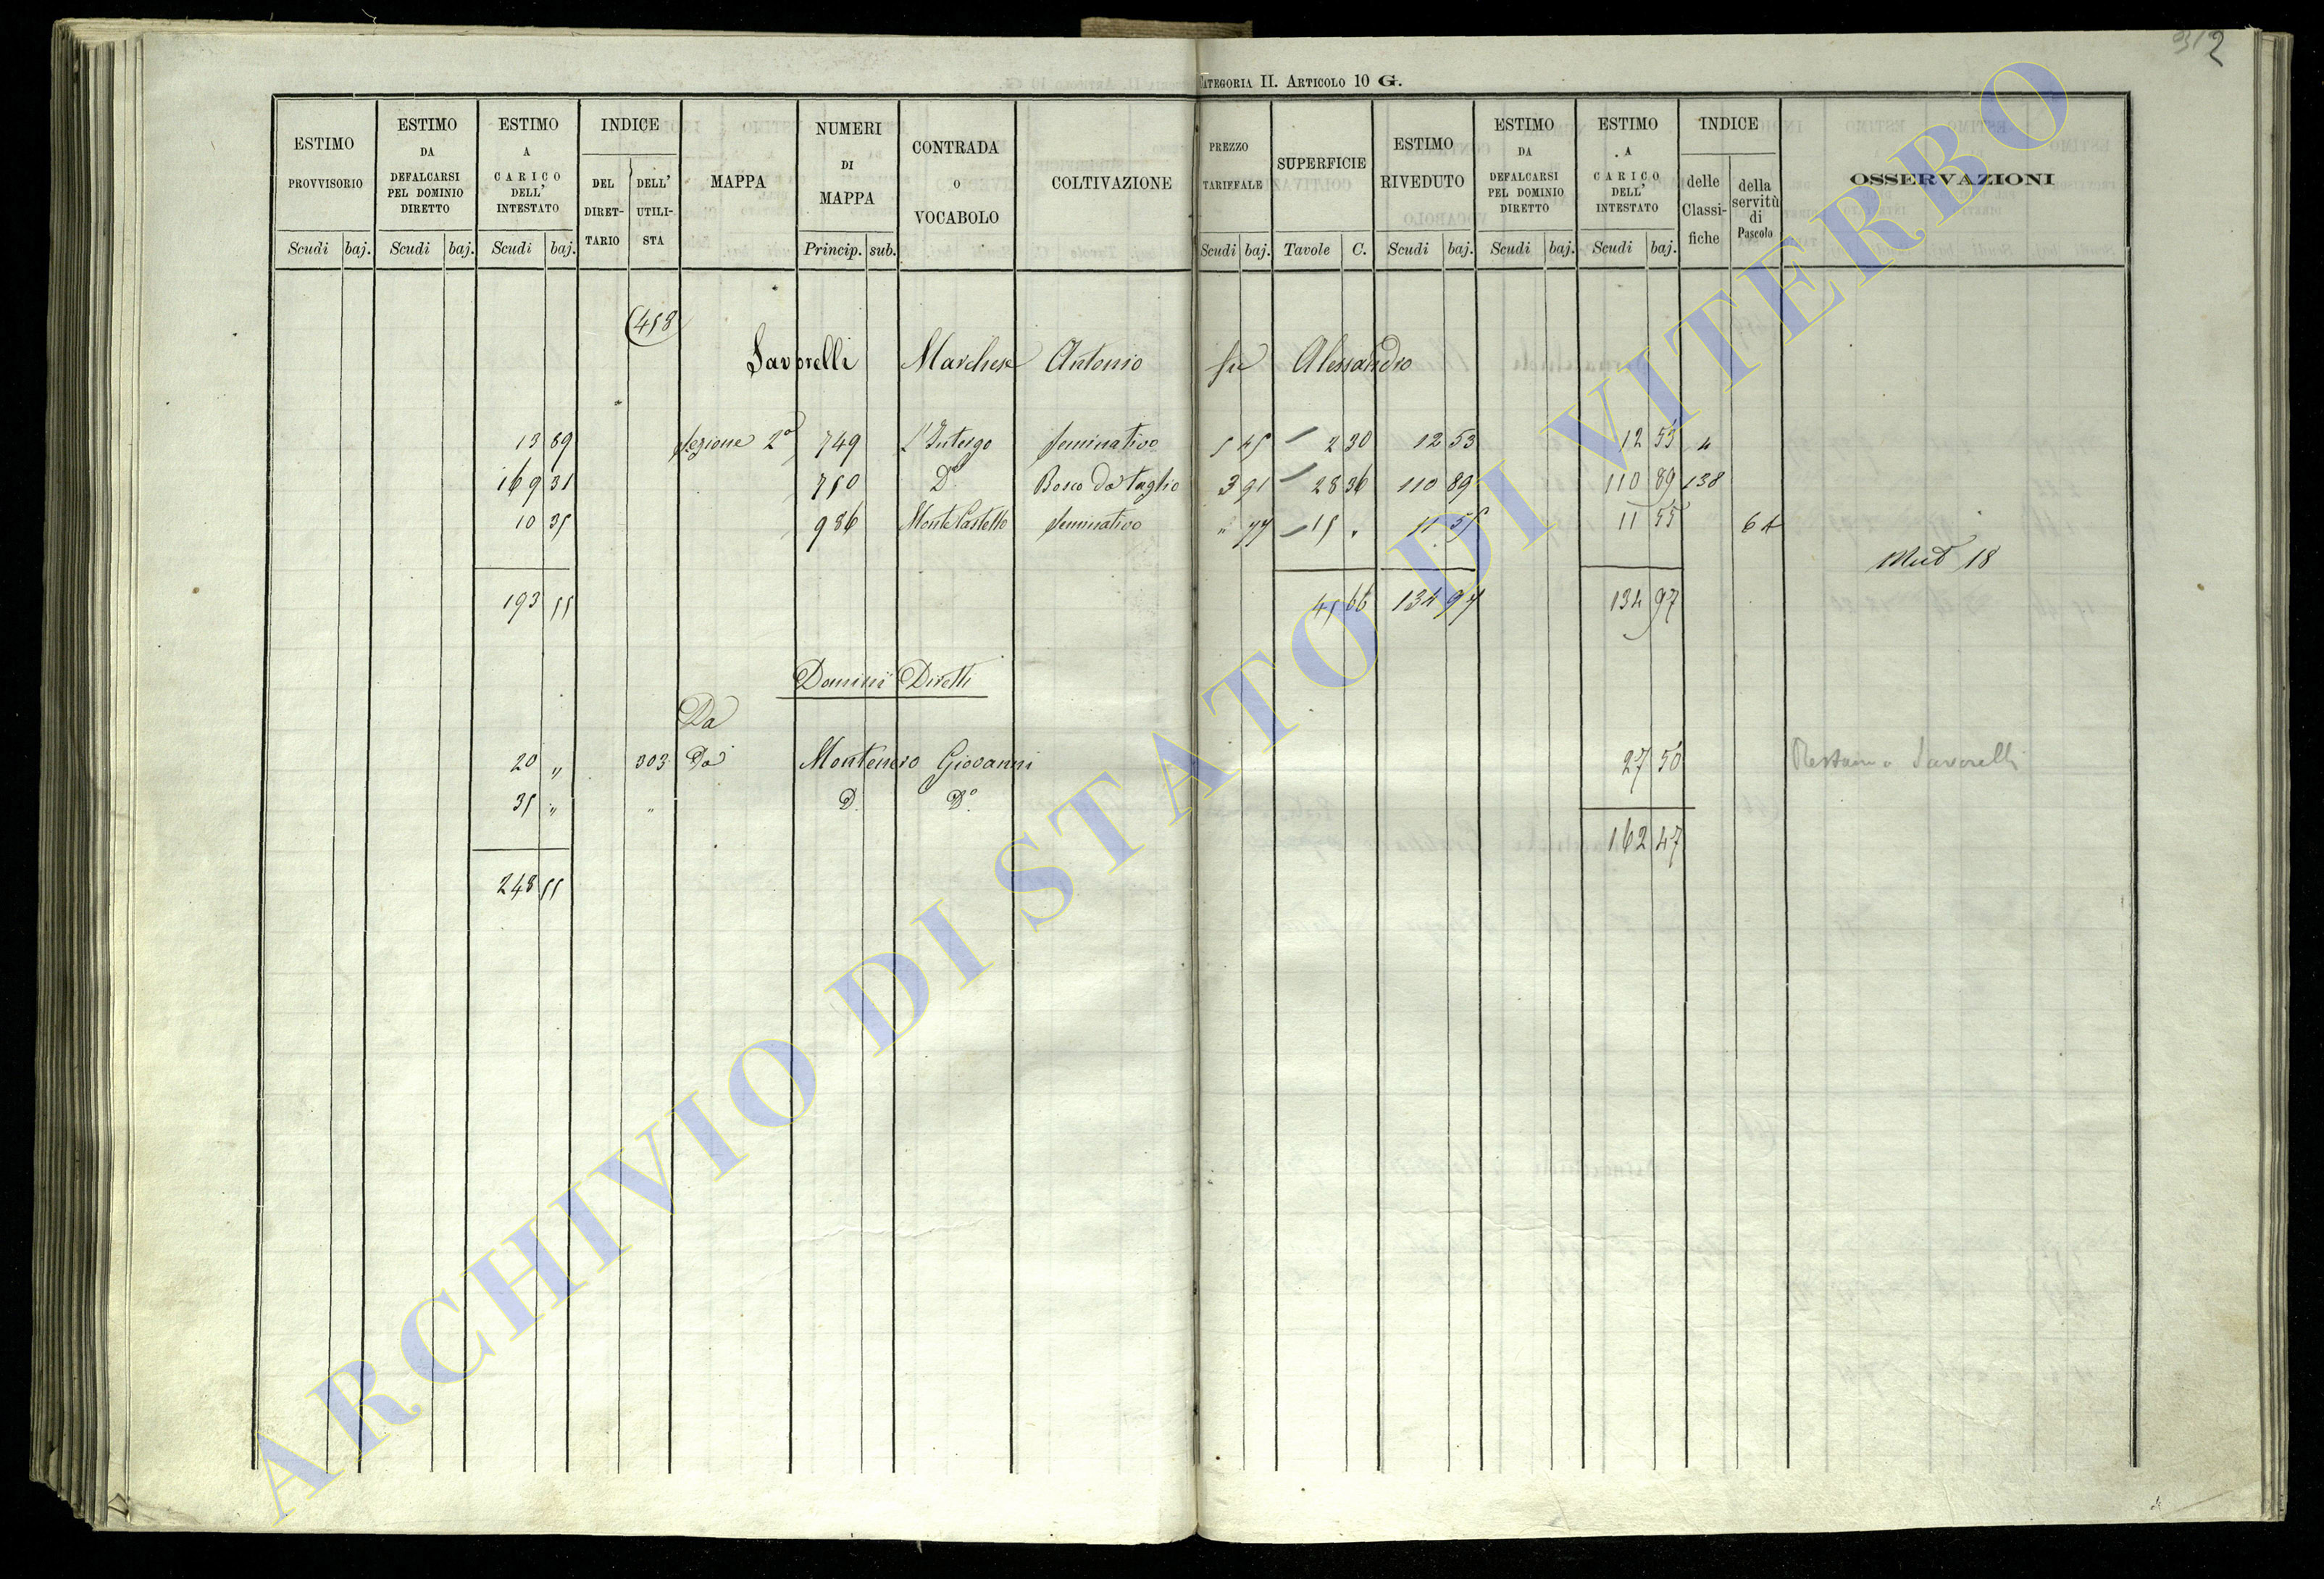 312
CATEGORIA II. ARTICOLO 10 G.
ESTIMO PROVVISORIO
Scudi baj.
ESTIMO DA DEFALCARSI PEL DOMINIO DIRETTO
Scudi baj.
ESTIMO A CARICO DELL' INTESTATO
Scudi baj.
INDICE
DEL DIRET-TARIO
DELL' UTILI-STA
MAPPA
NUMERI DI MAPPA
Princip. sub.
CONTRADA O VOCABOLO
COLTIVAZIONE
PREZZO TARIFFALE
Scudi baj.
SUPERFICIE
Tavole C.
ESTIMO RIVEDUTO
Scudi baj.
ESTIMO DA DEFALCARSI PEL DOMINIO DIRETTO
Scudi baj.
ESTIMO A CARICO DELL' INTESTATO
Scudi baj.
INDICE
delle Classi-fiche
della servitù di Pascolo
OSSERVAZIONI
458
Savorelli Marchese Antonio fu Alessandro
13 89 Sezione 2a 749 Seminativo 5 45 2 30 12 53 12 53
169 31 750 Do Bosco da taglio 3 91 28 36 110 89 110 89 138
10 35 986 Monte Castello Seminativo " 77 15 " 11 55 11 55 64
Mut 18
193 55 45 66 134 97 134 97
Dominii Diretti
Da
20 " 303 Da Montenero Giovanni 27 50 Savorelli
35 " " D. Do.
162 47
248 55
ARCHIVIO DI STATO DI VITERBO